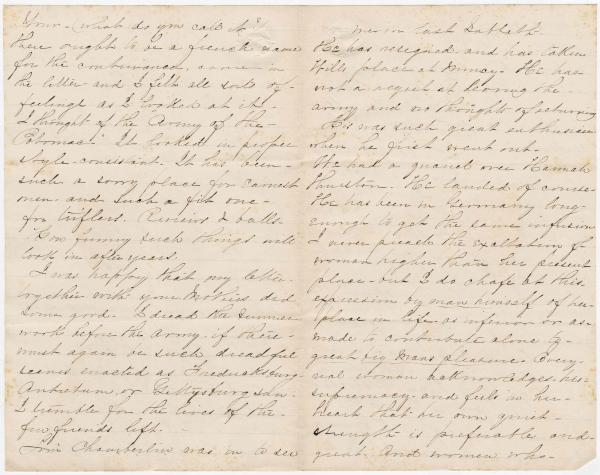 Your - (what do you call it?
there ought to be a french name
for the contrivance) came in
the letter - and I felt all sorts of
feelings as I looked at it.
I thought of the "Army of the
Potomac." It looked in proper
style - consistent. It has been
such a sorry place for earnest
men - and such a fit one -
for triflers. Reviews & balls.
How funny such things will
look in after years.
I was happy that my letter -
together with your Mothers did
some good. I dread the summer
work before the Army. if there
must again be such dreadful
scenes enacted as Fredricksburg
Antietam, or Gettysburg saw.
I tremble for the lives of the
few friends left.
Tom Chamberlin was in to see
me on last Sabbath.
He has resigned and has taken
Wills place at Muncy. He has
not a regret at leaving the
army and no thoughts of returning
His was such great enthusiasm
when he first went out.
We had a quarrel over Hannah
Thurston. He lauded of course
He has been in Germany long
enough to get the same infusion
I never preach the exaltation of
woman higher than her present
place - but I do chafe at this
expression by man himself of her
place in life as inferior or as
made to contribute alone to
great big mans pleasure. Every
real woman acknowledges his
supremacy - and feels in her
heart that her own quiet
strength is preferable and
great. And women who -